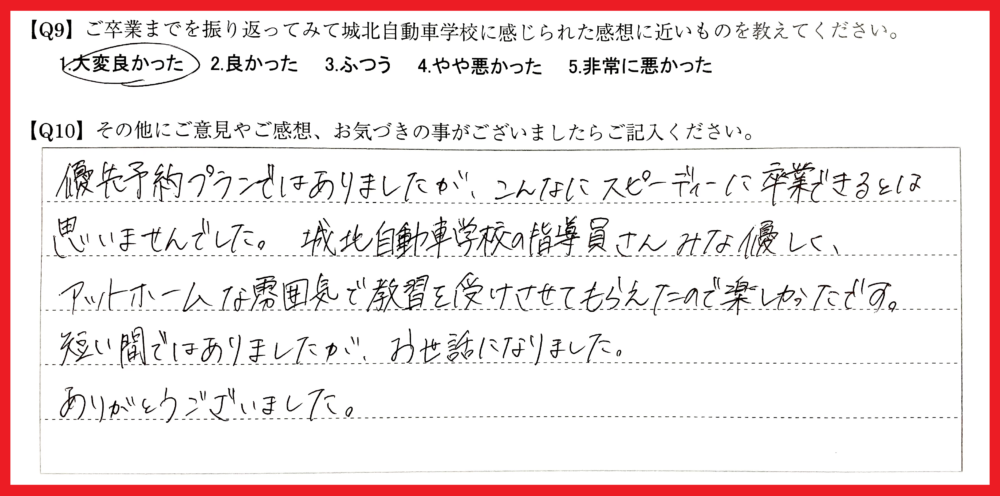 【Q9】ご卒業までを振り返ってみて城北自動車学校に感じられた感想に近いものを教えてください。
1.大変良かった 2.良かった 3.ふつう 4.やや悪かった 5.非常に悪かった
【Q10】その他にご意見やご感想、お気づきの事がございましたらご記入ください。
優先予約プランではありましたが、こんなにスピーディーに卒業できるとは
思いませんでした。城北自動車学校の指導員さんみな優しく、
アットホームな雰囲気で教習を受けさせてもらえたので楽しかったです。
短い間ではありましたが、お世話になりました。
ありがとうございました。